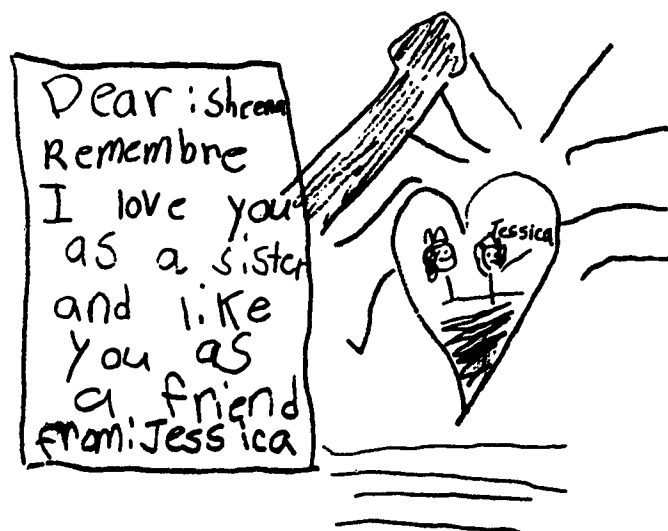 Dear: Sheena
Remembre
I love you
as a sister
and like
you as
a friend
from: Jessica
Jessica